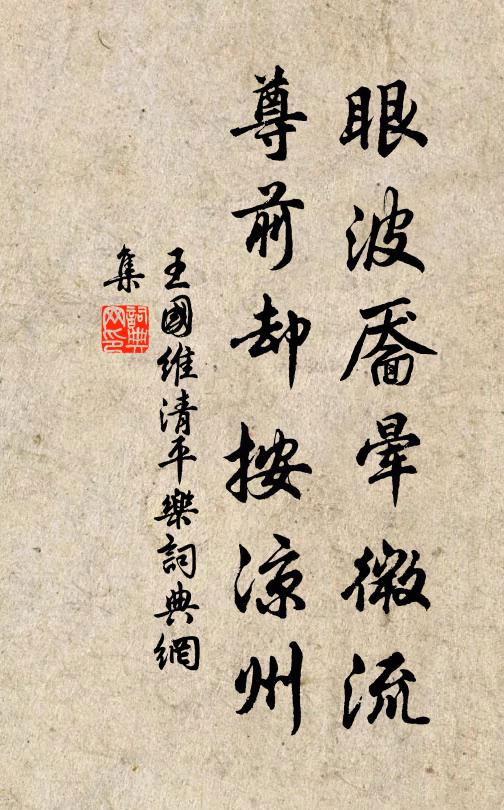 眼波靨暈微流
尊前却按凉州
王國維清平樂詞典網
集
詞典
网印